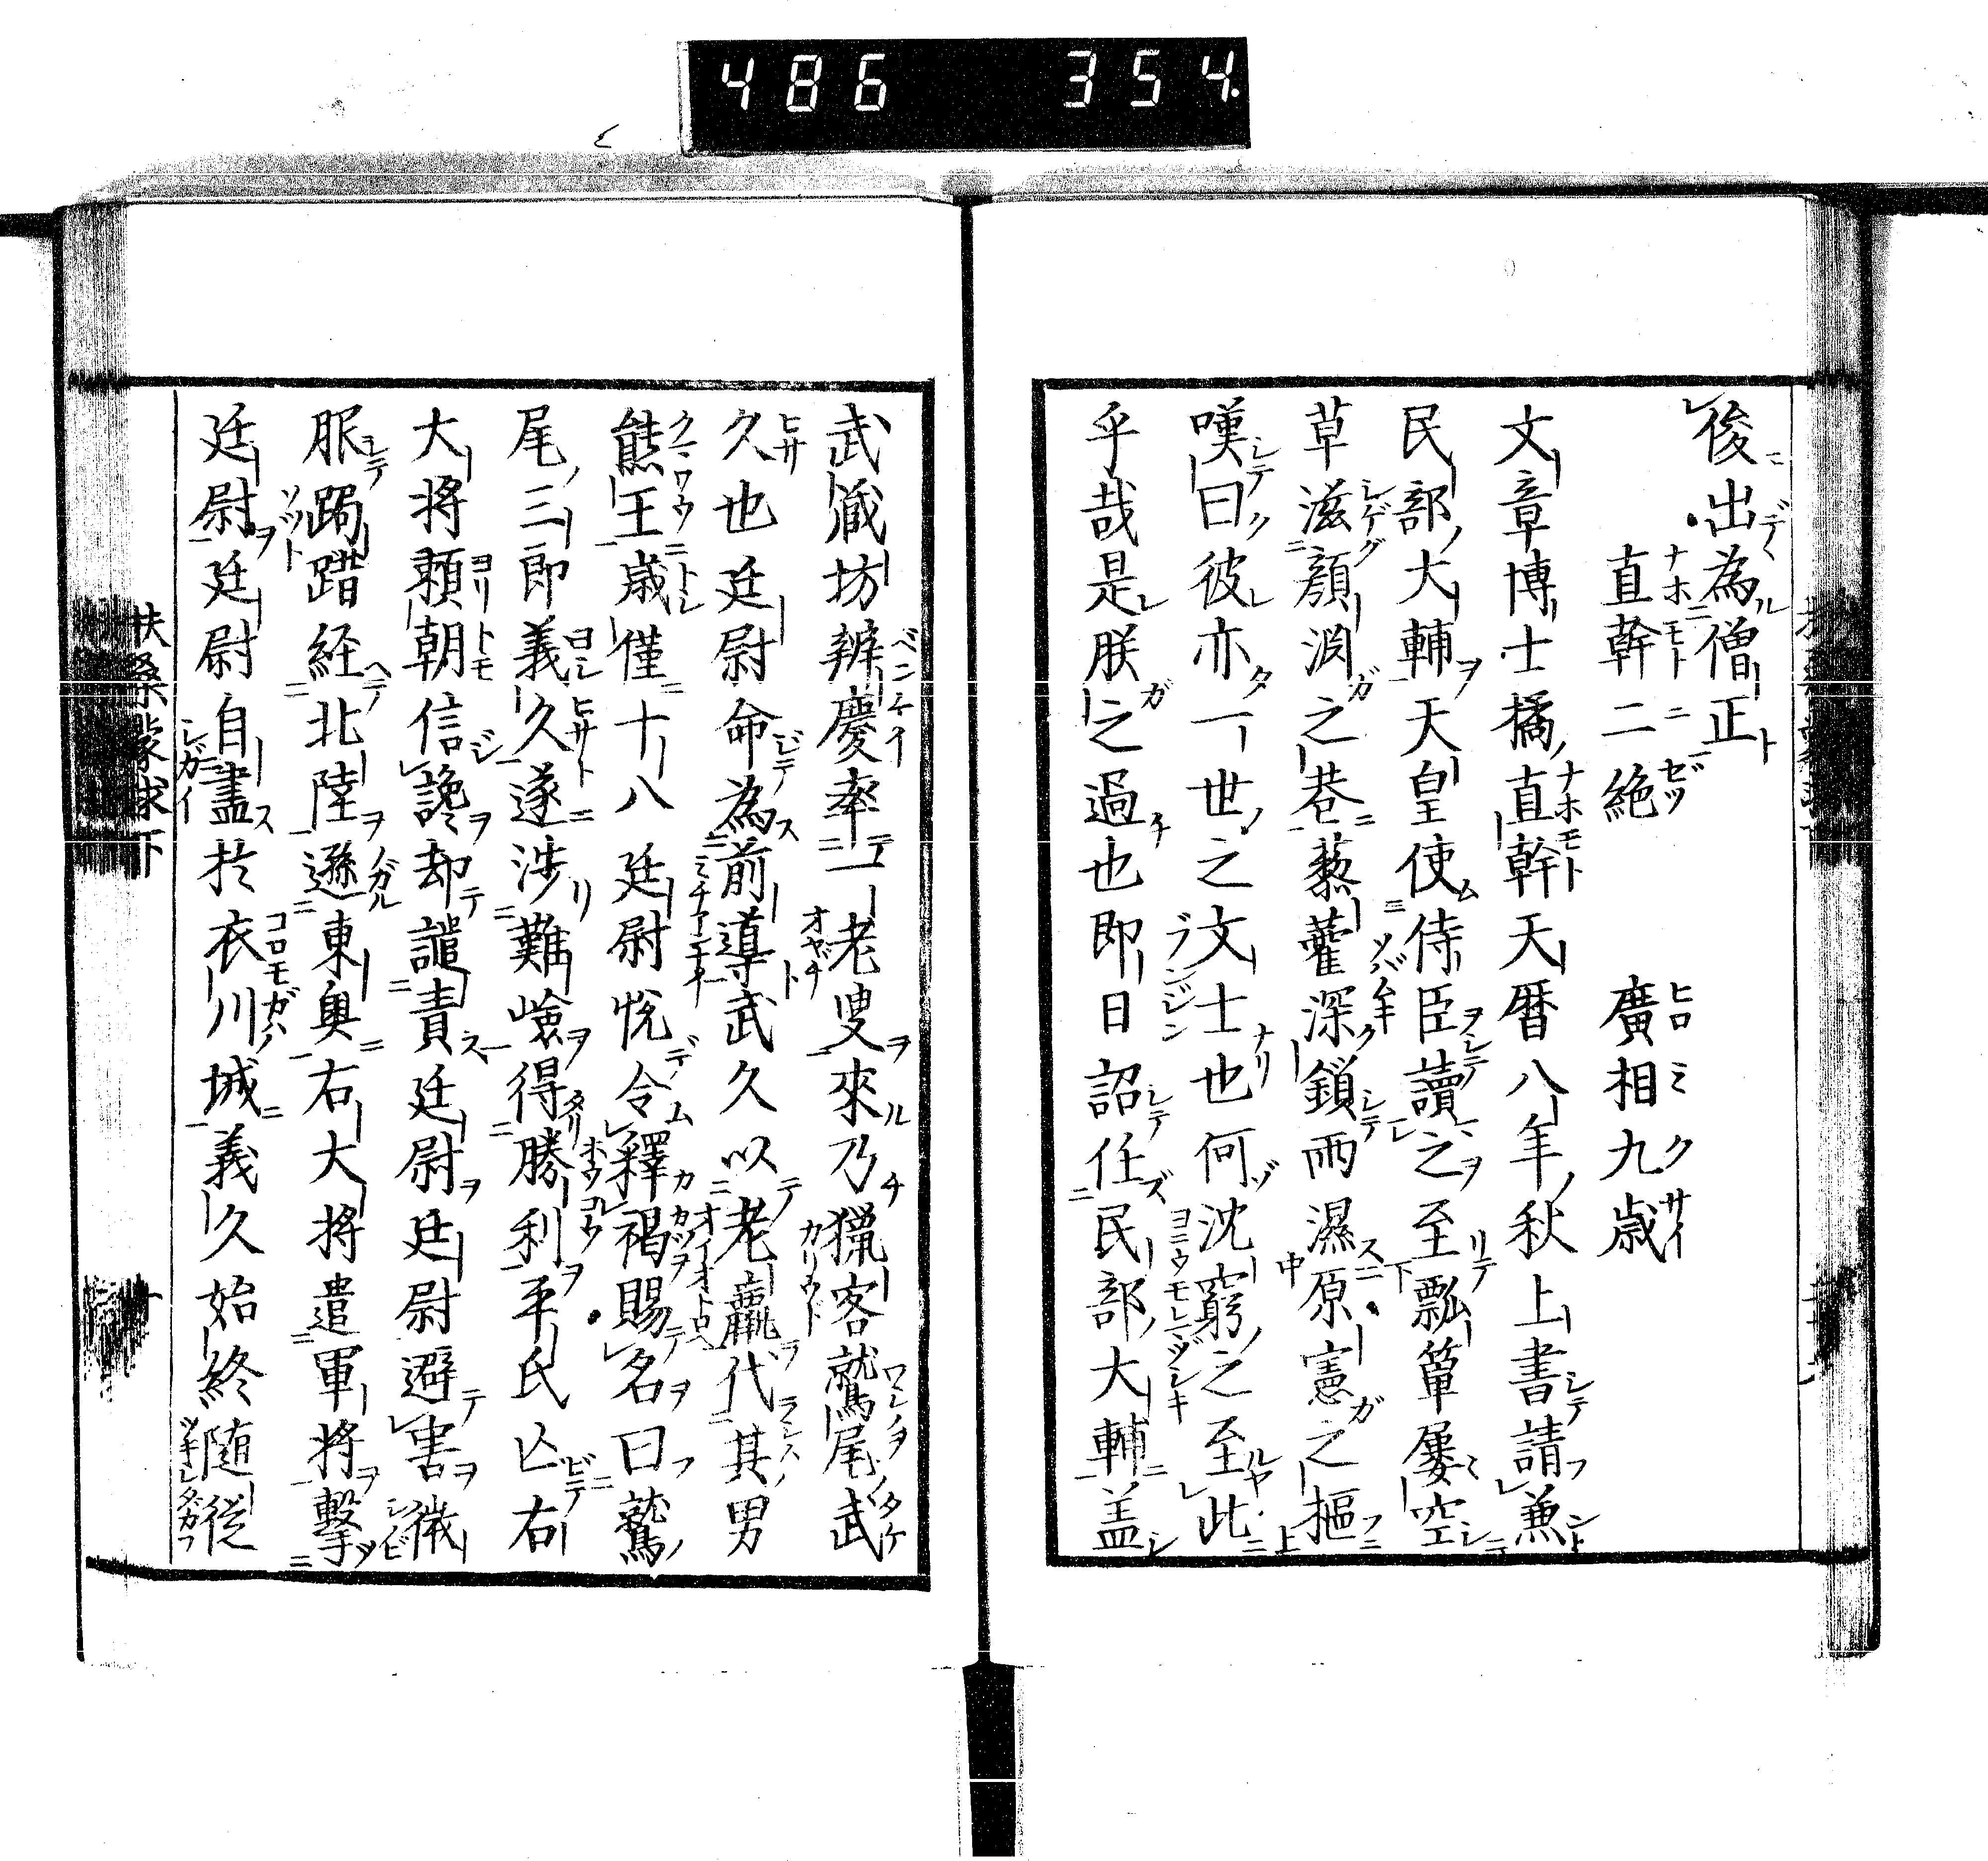 486 354
後出為僧正
直幹二絶 廣相九歳
文章博士橘直幹天暦八年秋上書請兼
民部大輔天皇使侍臣讀之至瓢簞屢空
草滋顔淵之巷藜藿深鎖雨濕原憲之樞
嘆曰彼亦一世之文士也何沈窮之至此
乎哉是朕之過也即日詔任民部大輔盖
武蔵坊辨慶率一老叟來乃獵客鷲尾武
久也廷尉命為前導武久以老羸代其男
熊王歳僅十八廷尉悦令釋褐賜名曰鷲
尾三郎義久遂渉難嶮得勝利平氏亡右
大将頼朝信讒却譴責廷尉廷尉避害微
服跼蹐経北陸遜東奥右大将遣軍将撃
廷尉廷尉自盡於衣川城義久始終随従
扶桑蒙求下